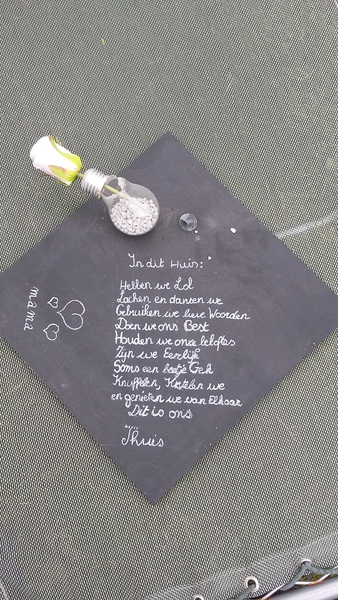 In dit Huis:
Hebben we Lol
Lachen en dansen we
Gebruiken we lieve Woorden
Doen we ons Best
Houden we onze beloftes
Zijn we Eerlijk
Soms een beetje Gek
Knuffelen, Kietelen we
en genieten we van Elkaar
Dit is ons
Thuis
mama